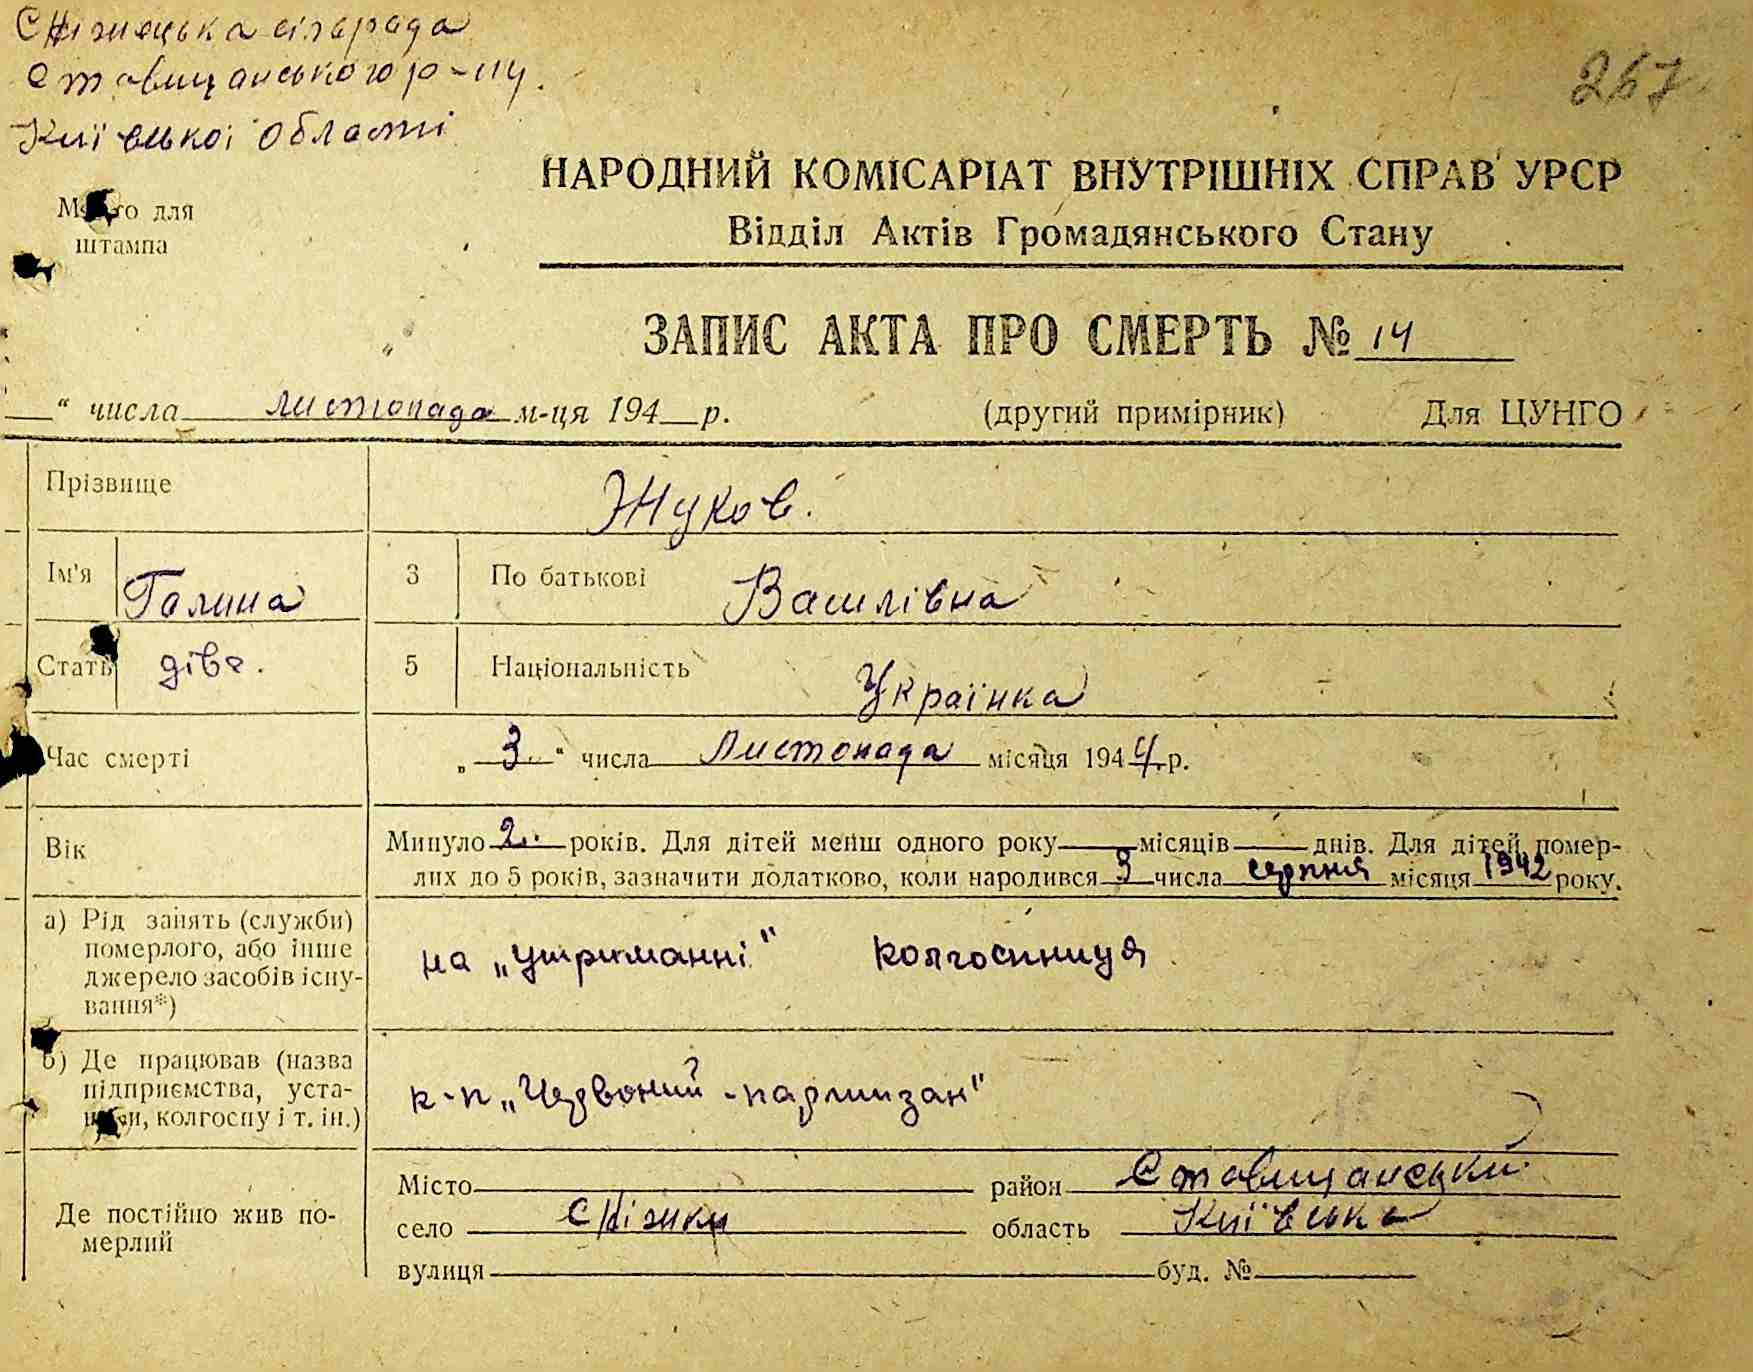 Сніжецька сільрада
Ставищанського р-ну.
Київської області
267
НАРОДНИЙ КОМІСАРІАТ ВНУТРІШНІХ СПРАВ УРСР
Відділ Актів Громадянського Стану
Місто для
штампа
ЗАПИС АКТА ПРО СМЕРТЬ № 14
“ числа листопада м-ця 194 р. (другий примірник) Для ЦУНГО
Прізвище Жуков.
Ім'я Галина 3 По батькові Василівна
Стать дівч. 5 Національність Українка
Час смерті „ 3 “ числа листопада місяця 1944 р.
Вік Минуло 2 років. Для дітей менш одного року місяців днів. Для дітей помер-
лих до 5 років, зазначити додатково, коли народився 3 числа серпня місяця 1942 року.
а) Рід занять (служби)
померлого, або інше
джерело засобів існу-
вання*)
на „утриманні" колгоспниця
б) Де працював (назва
підприємства, уста-
нови, колгоспу і т. ін.)
к-п „Червоний -партизан"
Де постійно жив по-
мерлий
Місто район Ставищанський
село Сніжки область Київська
вулиця буд. №